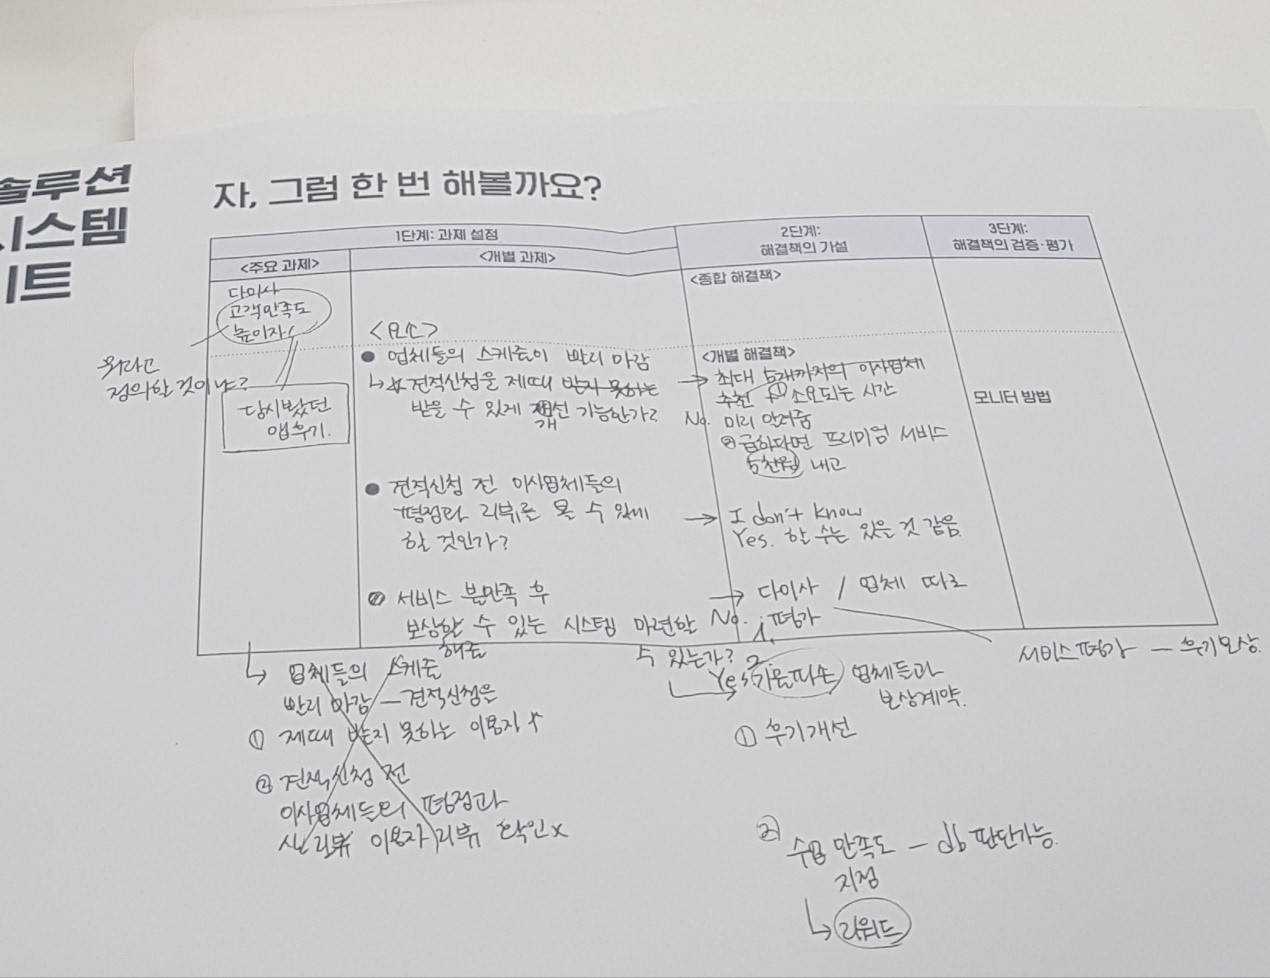 솔루션
시스템
시트
자, 그럼 한 번 해볼까요?
1단계: 과제 설정
2단계:
해결책의 가설
3단계:
해결책의 검증·평가
<주요 과제>
<개별 과제>
<종합 해결책>
다이사
고객만족도
높이자!
뭐라고
정의할 것이냐?
당시봤던
앱후기.
<요소>
● 업체들의 스케줄이 빨리 마감
↳ 견적신청을 제때 받지 못하는
받을 수 있게 개선 가능한가?
● 견적신청 전 이사업체들의
평점과 리뷰를 볼 수 있게
할 것인가?
서비스 불만족 후
보상할 수 있는 시스템 마련할
해줄
수 있는가?
<개별 해결책>
→ 최대 5개까지의 이사업체
추천 + ① 소요되는 시간
No. 미리 알려줌
② 급하다면 프리미엄 서비스
5천원 내고
→ I don't know
Yes. 할 수는 있을 것 같음.
→ 다이사 / 업체 따로
No. 1. 평가
Yes 2. 업체들과
보상계약.
모니터 방법
서비스평가 — 후기보상.
↳ 업체들의 스케줄
빨리 마감 — 견적신청은
① 제때 받지 못하는 이용자
② 견적신청 전
이사업체들의 평점과
이용자 리뷰 확인x
① 후기개선
② 만족도 — db 판단가능.
지정
↳ 리워드